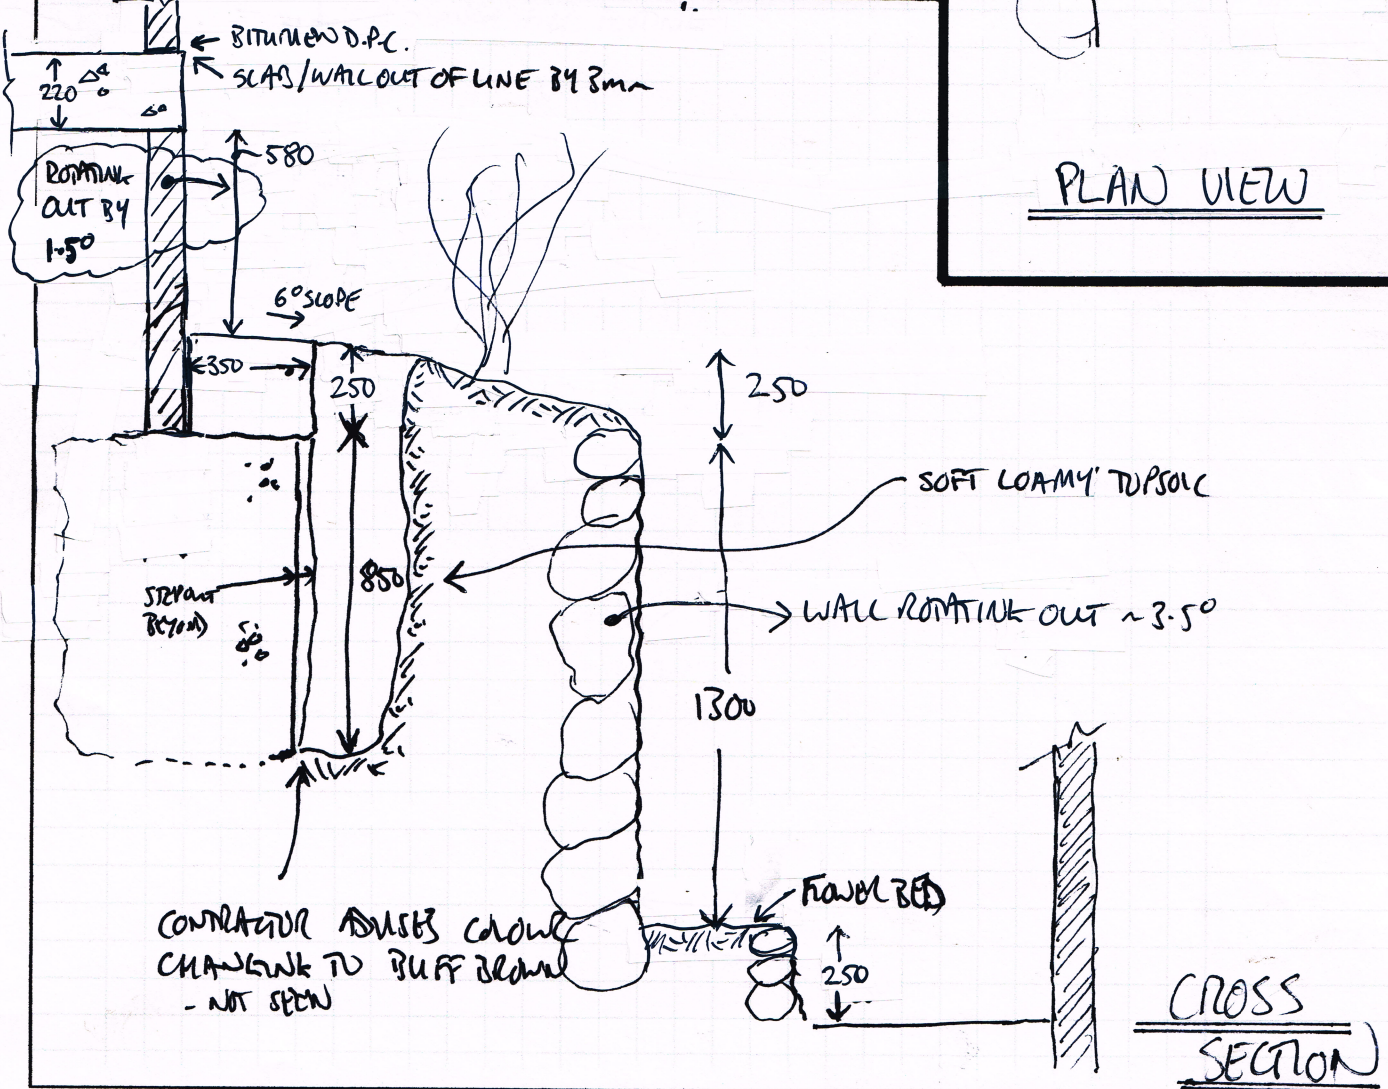 BITUMEN D.P.C.
SLAB/WALL OUT OF LINE BY 3mm
220
580
ROTATING
OUT BY
1.5°
PLAN VIEW
6° SLOPE
350
250
250
SOFT LOAMY TOPSOIL
850
STEPOUT
BEYOND
WALL ROTATING OUT ~3.5°
1300
FLOWER BED
CONTRACTOR ADVISES COLOUR
CHANGING TO BUFF BROWN
- NOT SEEN
250
CROSS
SECTION